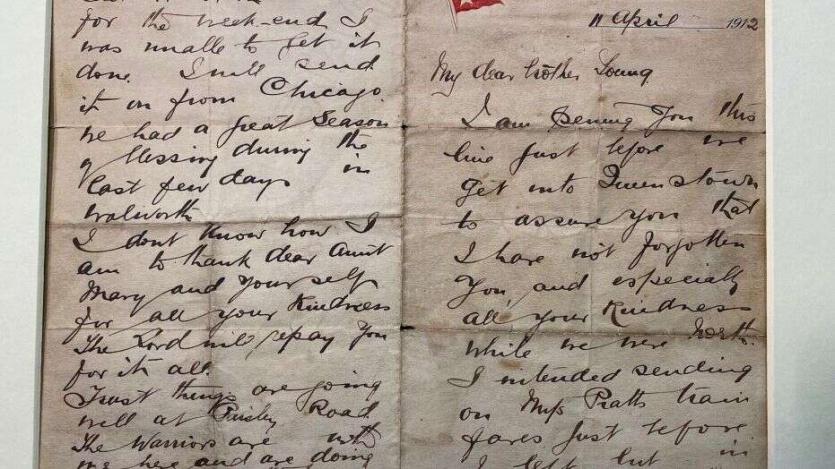 11 April 1912
My dear brother Young
I am penning you this
line just before we
get into Queenstown
to assure you that
I have not forgotten
you and especially
all your kindness
while we were North.
I intended sending
on Miss Pratts train
fares just before
I left but in
for the week-end I
was unable to get it
done. I will send
it on from Chicago
we had a great season
of blessing during the
last few days in
walworth
I dont know how I
am to thank dear Aunt
Mary and yourself
for all your Kindness
The Lord will repay you
for it all.
Trust things are going
well at Paisley Road.
The Warriors are with
me here and are doing